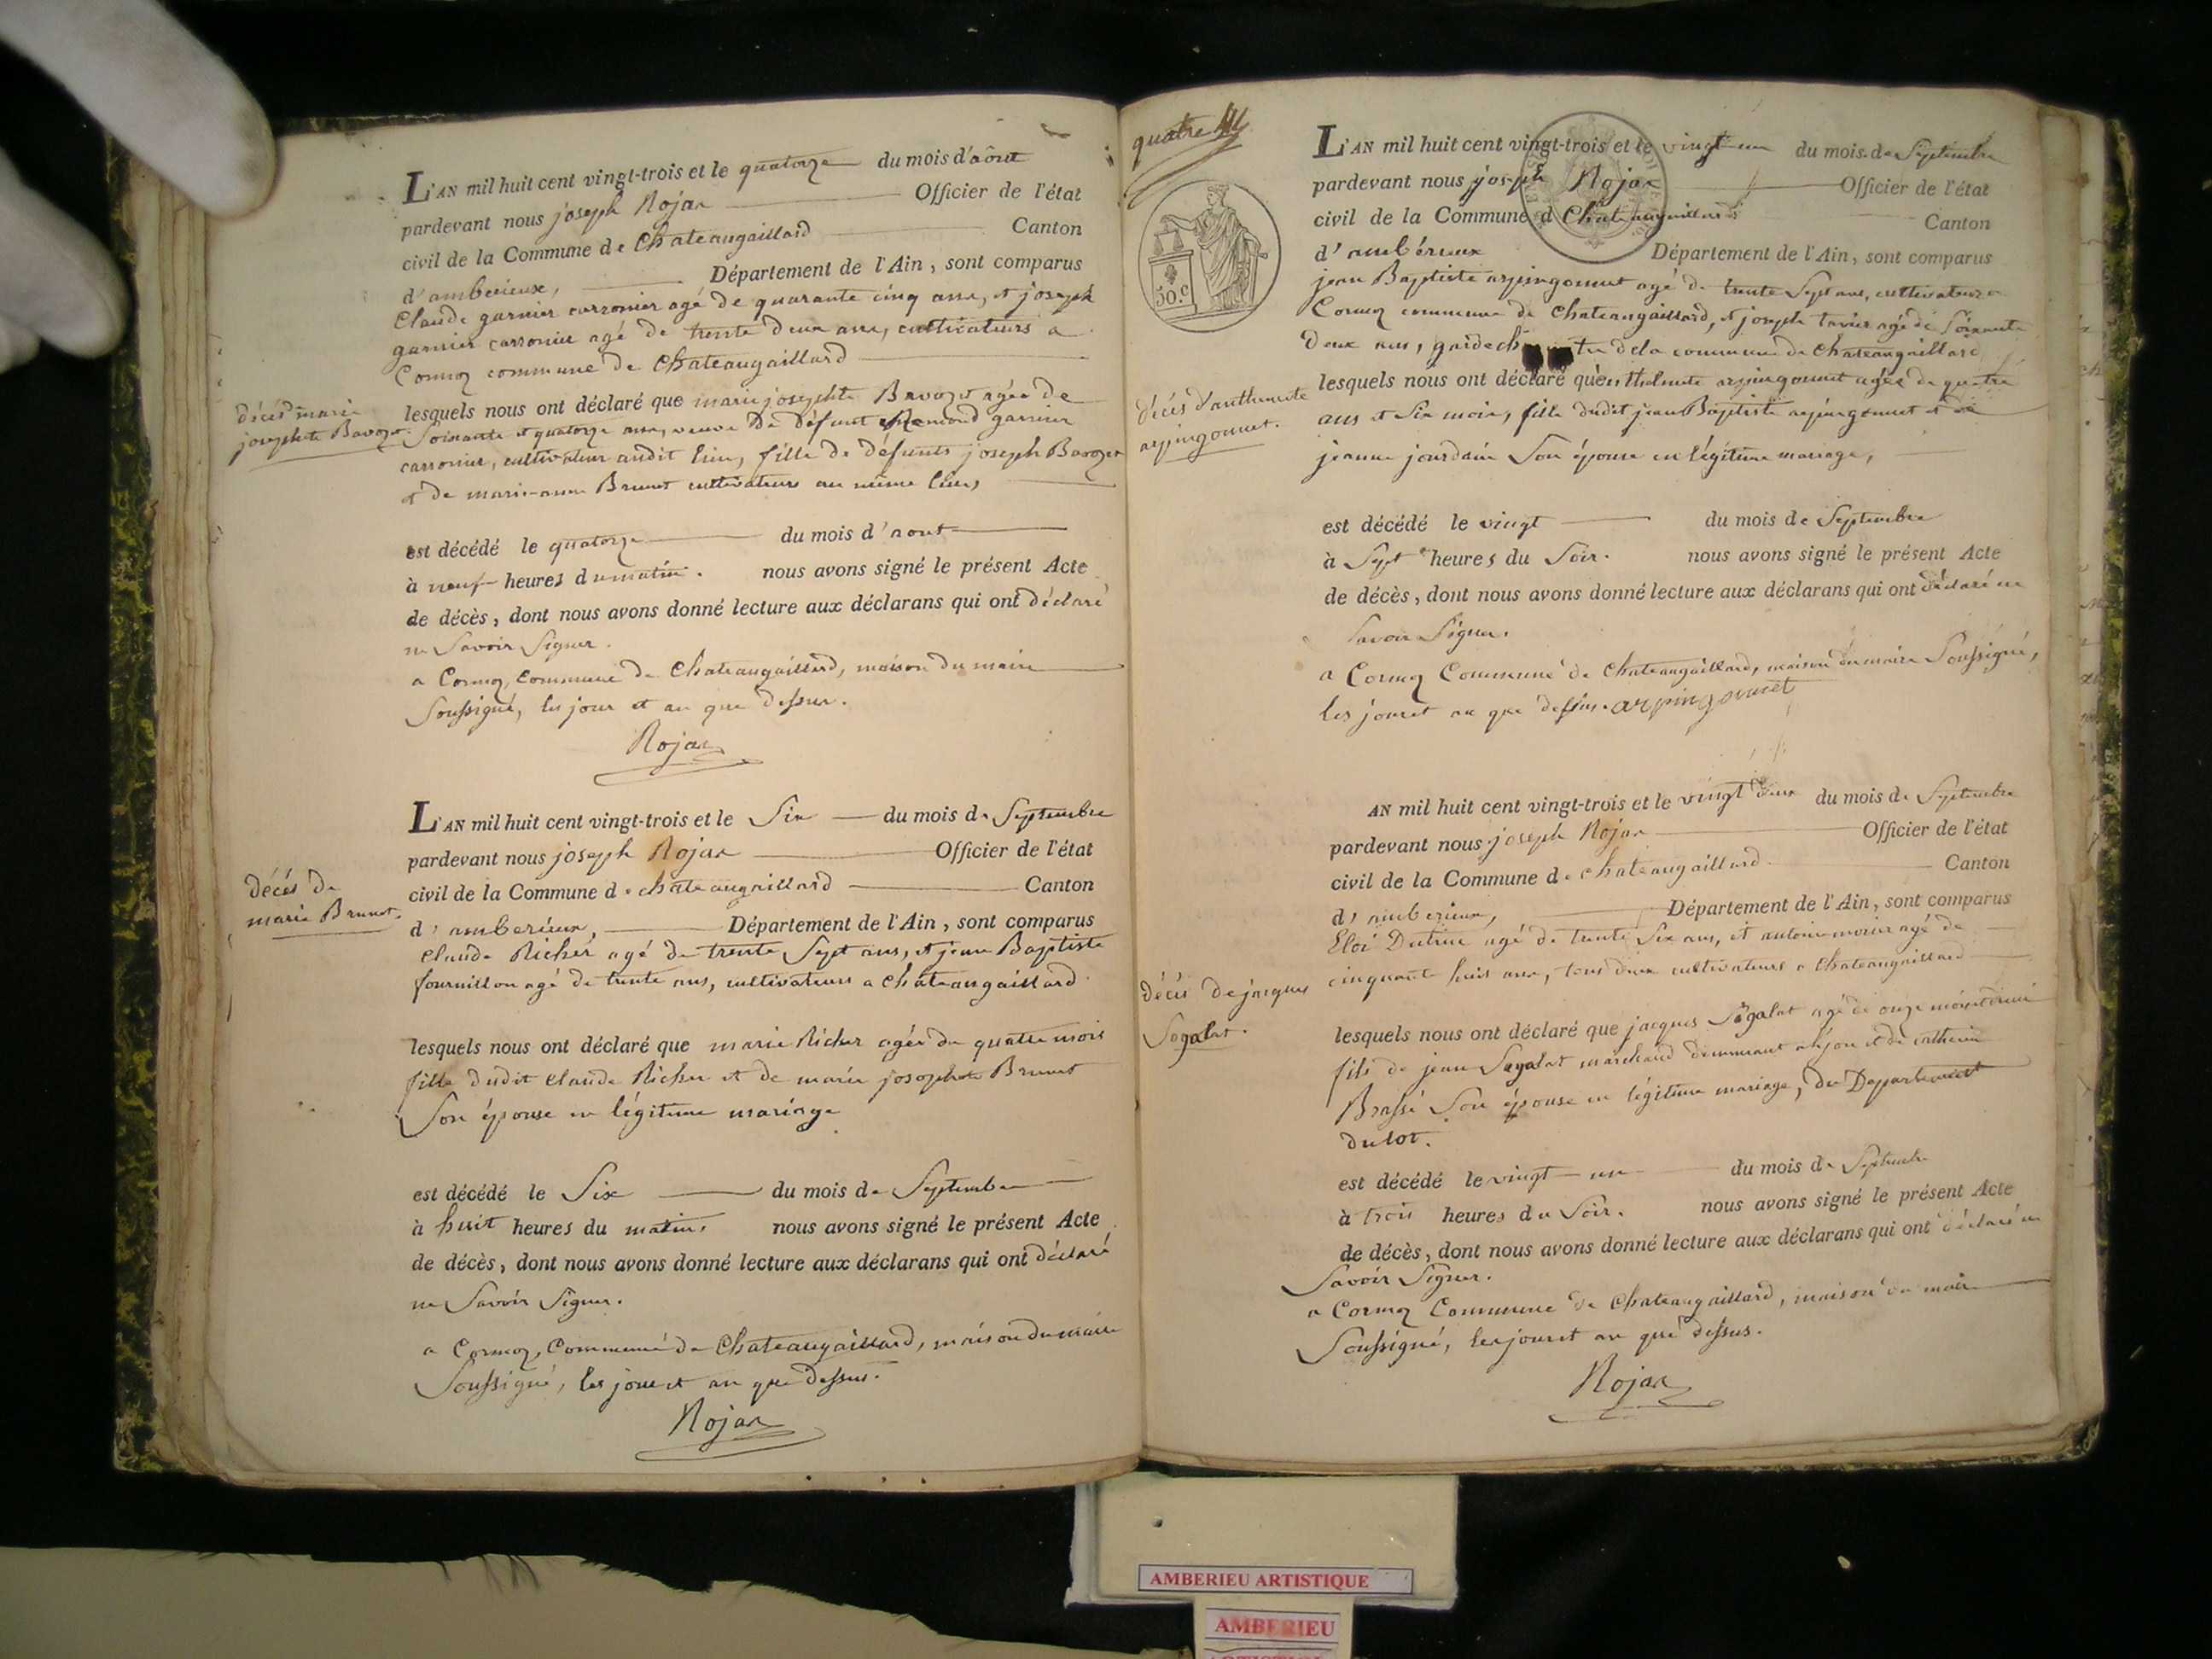 L'AN mil huit cent vingt-trois et le quatorze du mois d'aôut
pardevant nous joseph Rojar Officier de l'état
civil de la Commune de Chateaugaillard Canton
d'amberieux, Département de l'Ain, sont comparus
Claude garnier carronier agé de quarante cinq ans, et joseph
garnier carronier agé de trente deux ans, cultivateurs a
Cormoz commune de Chateaugaillard
décés marie
josephte Bavozet.
lesquels nous ont déclaré que marie josephte Bavozet agée de
Soixante et quatorze ans, veuve de défunt garnier
carronier, cultivateur audit lieu, fille de défunts joseph Bavozet
et de marie-anne Brunet cultivateurs au même lieu,
est décédé le quatorze du mois d'aout
à neuf heures du matin. nous avons signé le présent Acte
de décès, dont nous avons donné lecture aux déclarans qui ont déclaré
ne Savoir Signer.
a Cormoz, Commune de Chateaugaillard, maison du maire
Soussigné, les jour et an que dessus.
Rojar
L'AN mil huit cent vingt-trois et le Six du mois de Septembre
pardevant nous joseph Rojar Officier de l'état
civil de la Commune de chateaugaillard Canton
d'amberieux, Département de l'Ain, sont comparus
décés de
marie Brunet.
Claude Richer agé de trente Sept ans, et jean Baptiste
fournillon agé de trente ans, cultivateurs a chateaugaillard
lesquels nous ont déclaré que marie Richer agée de quatre mois
fille dudit Claude Richer et de marie josephte Brunet
Son épouse en légitime mariage
est décédé le Six du mois de Septembre
à huit heures du matin, nous avons signé le présent Acte
de décès, dont nous avons donné lecture aux déclarans qui ont déclaré
ne Savoir Signer.
a Cormoz, Commune de Chateaugaillard, maison du maire
Soussigné, les jour et an que dessus.
Rojar
quatre
50.c
L'AN mil huit cent vingt-trois et le vingt un du mois de Septembre
pardevant nous joseph Rojar Officier de l'état
civil de la Commune d Chateaugaillard Canton
d'ambérieux Département de l'Ain, sont comparus
jean Baptiste arpingonnet agé de trente Sept ans, cultivateur a
Cormoz commune de Chateaugaillard, et joseph tavier agé de Soixante
Deux ans, garde de la commune de Chateaugaillard
décés d'anthelmette
arpingonnet.
lesquels nous ont déclaré qu'enthelmete arpingonnet agée de quatre
ans et Six mois, fille dudit jean Baptiste arpingonnet et de
jeanne jourdain Son épouse en légitime mariage,
est décédé le vingt du mois de Septembre
à Sept heures du Soir. nous avons signé le présent Acte
de décès, dont nous avons donné lecture aux déclarans qui ont déclaré ne
Savoir Signer.
a Cormoz Commune de Chateaugaillard, maison du maire Soussigné,
les jour et an que dessus. arpingonnet
AN mil huit cent vingt-trois et le vingt deux du mois de Septembre
pardevant nous joseph Rojar Officier de l'état
civil de la Commune de Chateaugaillard Canton
d'amberieux, Département de l'Ain, sont comparus
Eloi Dutruc agé de trente Six ans, et antoine morier agé de
cinquante huit ans, tous deux cultivateurs a Chateaugaillard
décés de jacques
Sogalat.
lesquels nous ont déclaré que jacques Sogalat agé de onze mois et demi
fils de jean Sogalat marchand demeurant et de catherine
Brassé Son épouse en légitime mariage, du Departement
du lot.
est décédé le vingt-un du mois de Septembre
à trois heures du Soir. nous avons signé le présent Acte
de décès, dont nous avons donné lecture aux déclarans qui ont déclaré ne
Savoir Signer.
a Cormoz Commune de Chateaugaillard, maison du maire
Soussigné, les jour et an que dessus.
Rojar
AMBERIEU ARTISTIQUE
AMBERIEU